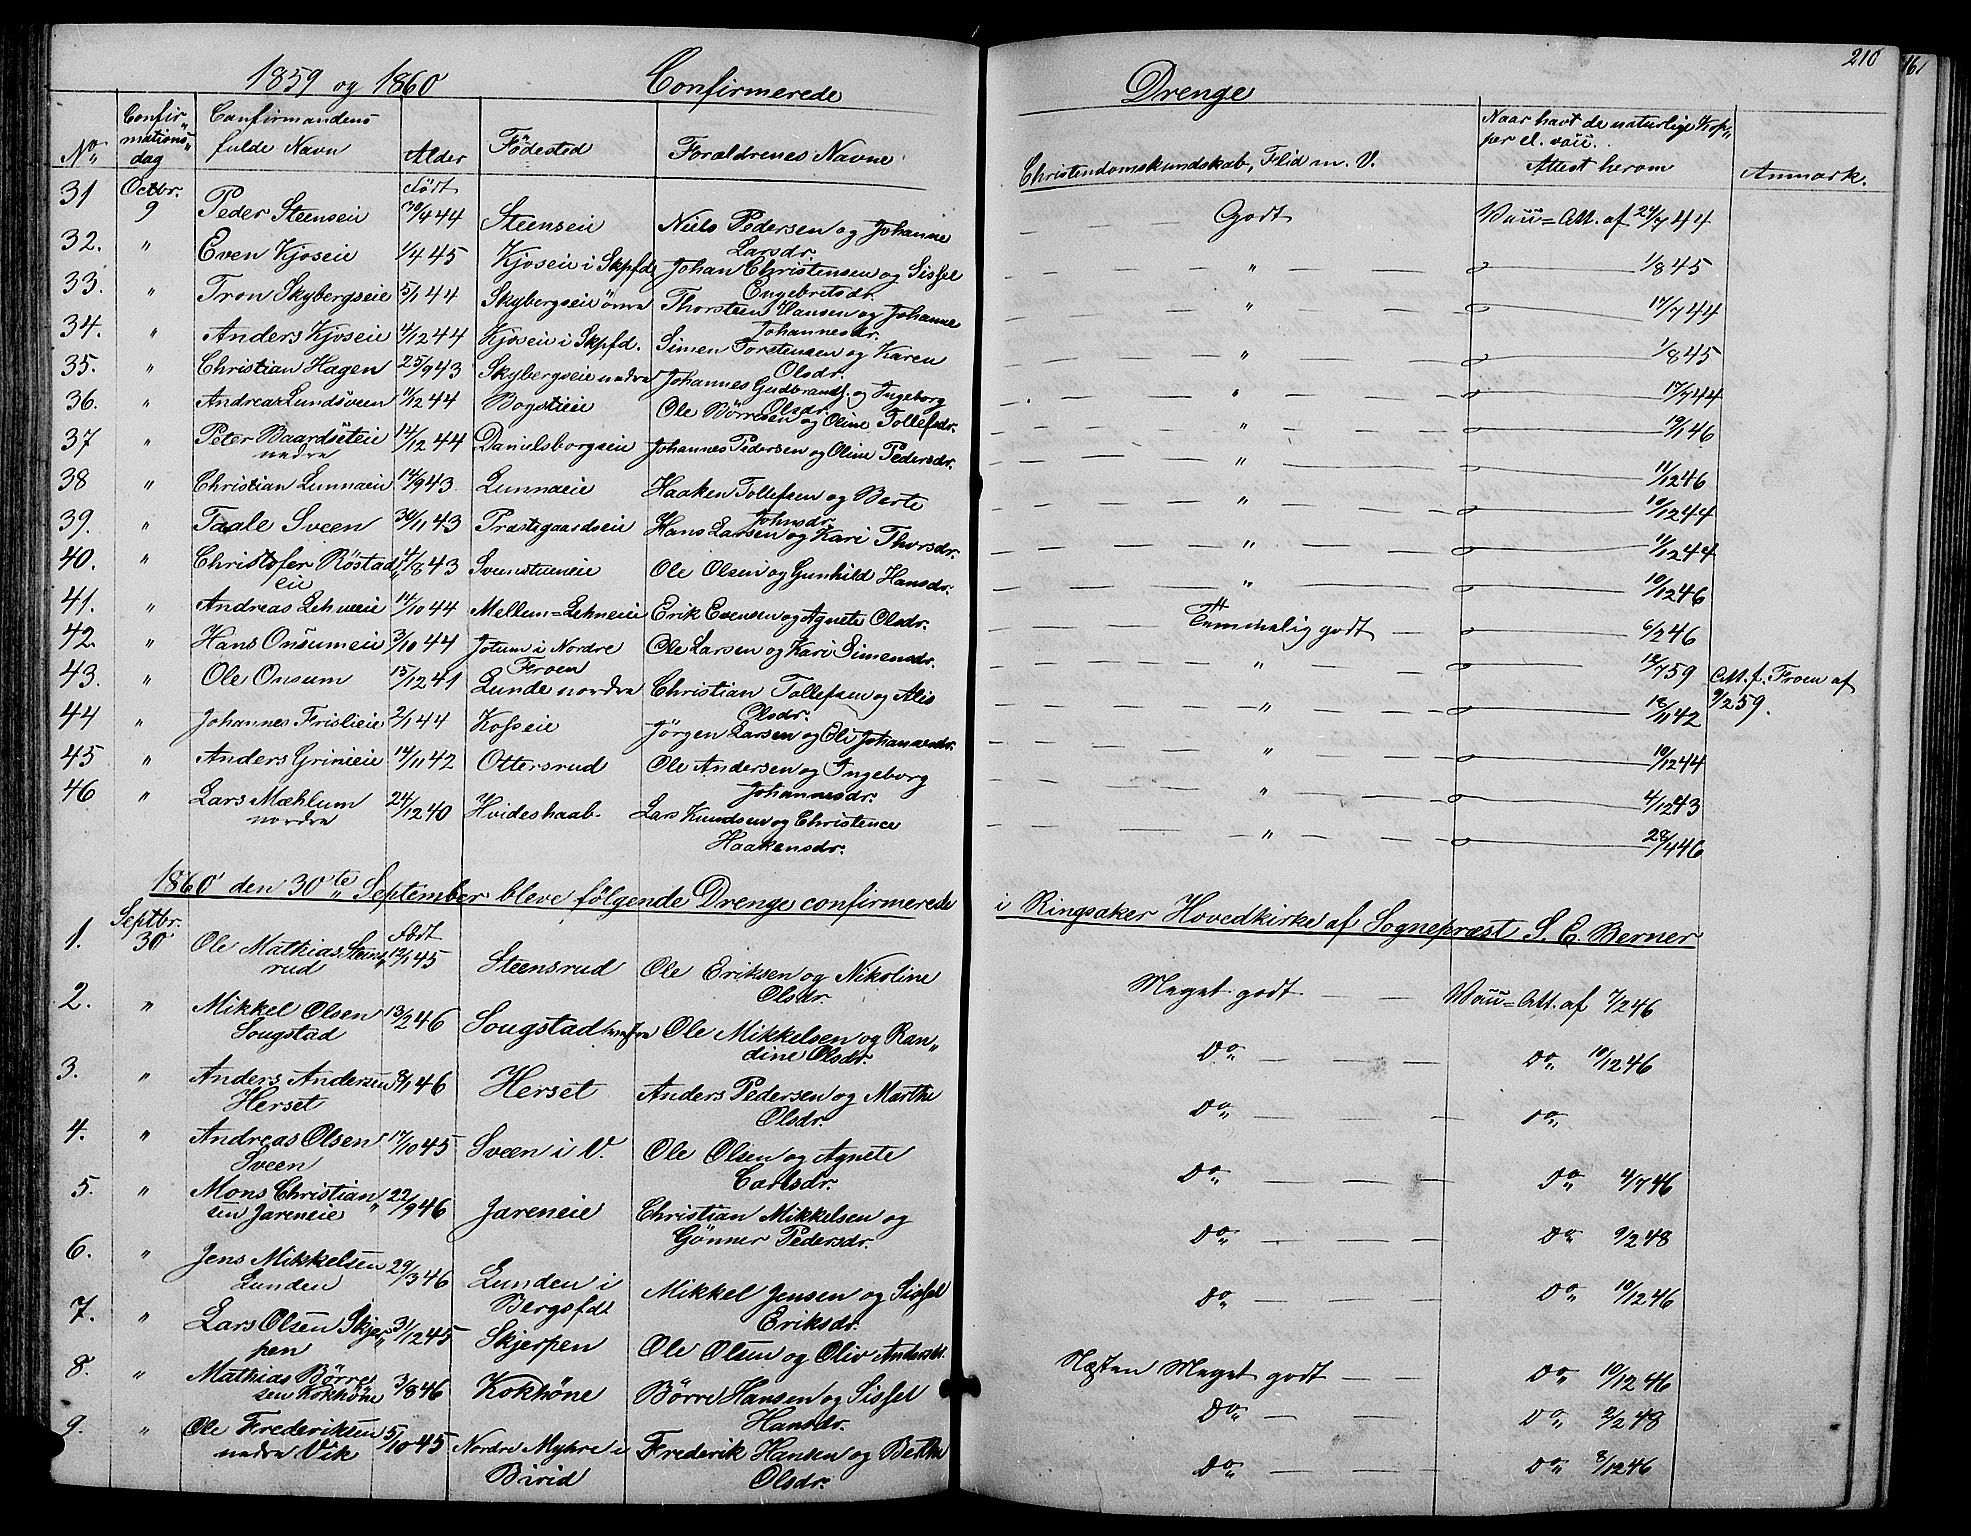 1859 og 1860 Confirmerede Drenge 210 161
No Confirmationsdag Confirmandens fulde Navn Alder Födested Forældrenes Navne Christendomskundskab, Flid m. V. Naar havt de naturlige Kopper el. vacc. Attest herom Anmærk.
31 Octbr. 9 Peder Steenseie Født 30/4 44 Steenseie Niels Pedersen og Johanne Larsdr. Godt Vacc=Att. af 24/7 44
32. " Even Kjoseie 1/4 45 Kjoseie i Skpfd. Johan Christensen og Sissel Engebretsdr. " 1/8 45
33. " Tron Skybergseie 5/1 44 Skybergseie övre Thorsteen Hansen og Johanne Johannesdr. " 17/7 44
34. " Anders Kjoseie 4/12 44 Kjoseie i Skpfd. Simen Torstensen og Karen Olsdr. " 1/8 45
35. " Christian Hagen 25/9 43 Skybergseie nedre Johannes Gudbrands. og Ingeborg Olsdr. " 17/7 44
36. " Andreas Lundsveen 11/2 44 Bogstieie Ole Börresen og Oline Tollefsdr. " 19/1 46
37 " Peter Baardseteie nedre 14/12 44 Danielsborgseie Johannes Pedersen og Oline Pedersdr. " 11/12 46
38 " Christian Lunnaeie 14/9 43 Lunnaeie Haaken Tollefsen og Berte Johnsdr. " 10/12 44
39. " Taale Sveen 30/11 43 Præstegaardseie Hans Larsen og Kari Thorsdr. " 11/12 44
40. " Christofer Röstadeie 4/8 43 Ole Olsen og Gunhild Hansdr. " 10/12 46
41. " Andreas Lehneeie 14/10 44 Mellem=Lehneeie Erik Evensen og Agnete Olsdr. Temmelig godt 6/2 46
42. " Hans Onsumeie 3/10 44 Jotum i Nordre Froen Ole Larsen og Kari Simensdr. " 12/7 59 Att. f. Froen af 9/2 59.
43. " Ole Onsum 15/12 41 Lunde nordre Christian Tollefsen og Alis Olsdr. " 18/11 42
44 " Johannes Frislieie 2/1 44 Kosseie Jörgen Larsen og Eli Johannesdr. " 10/12 44
45 " Anders Grinieie 14/11 42 Ottersrud Ole Andersen og Ingeborg Johannesdr. " 4/12 43
46 " Lars Mæhlum nordre 24/12 40 Hvideskaab Lars Knudsen og Christence Haakensdr. " 28/4 46
1860 den 30te September bleve fölgende Drenge confirmerede i Ringsaker Hovedkirke af Sognepræst S. E. Berner
1. Septbr. 30 Ole Mathias Steensrud Født 12/1 45 Steensrud Ole Eriksen og Nikoline Olsdr. Meget godt Vacc=Att. af 7/2 46
2. " Mikkel Olsen Sougstad 13/2 46 Sougstad Ole Mikkelsen og Randine Olsdr. Do Do 10/12 46
3. " Anders Andersen Herset 8/1 46 Herset Anders Pedersen og Marthe Olsdr. Do Do
4. " Andreas Olsen Sveen 17/10 45 Sveen i V. Ole Olsen og Agnete Carlsdr. Do Do 4/7 46
5. " Mons Christiansen Jareneie 22/9 46 Jareneie Christian Mikkelsen og Gönner Pedersdr. Do Do 9/2 48
6. " Jens Mikkelsen Lunden 29/3 46 Lunden i Bergsfdt Mikkel Jensen og Sissel Eriksdr. Do Do 10/12 46
7. " Lars Olsen Skjerpen 31/12 45 Skjerpen Ole Olsen og Oliv Andersdr. Næsten Meget godt Do 10/12 46
8. " Mathias Börresen Kokhöne 3/8 46 Kokhöne Börre Hansen og Sissel Hansdr. Do Do 2/2 48
9. " Ole Frederiksen nedre Vik 5/10 45 Nordre Myhre i Birid Frederik Hansen og Berthe Olsdr. Do Do 8/12 46